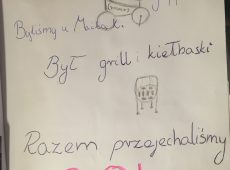 Byliśmy u
Był grill i kiełbaski
Razem przejechaliśmy